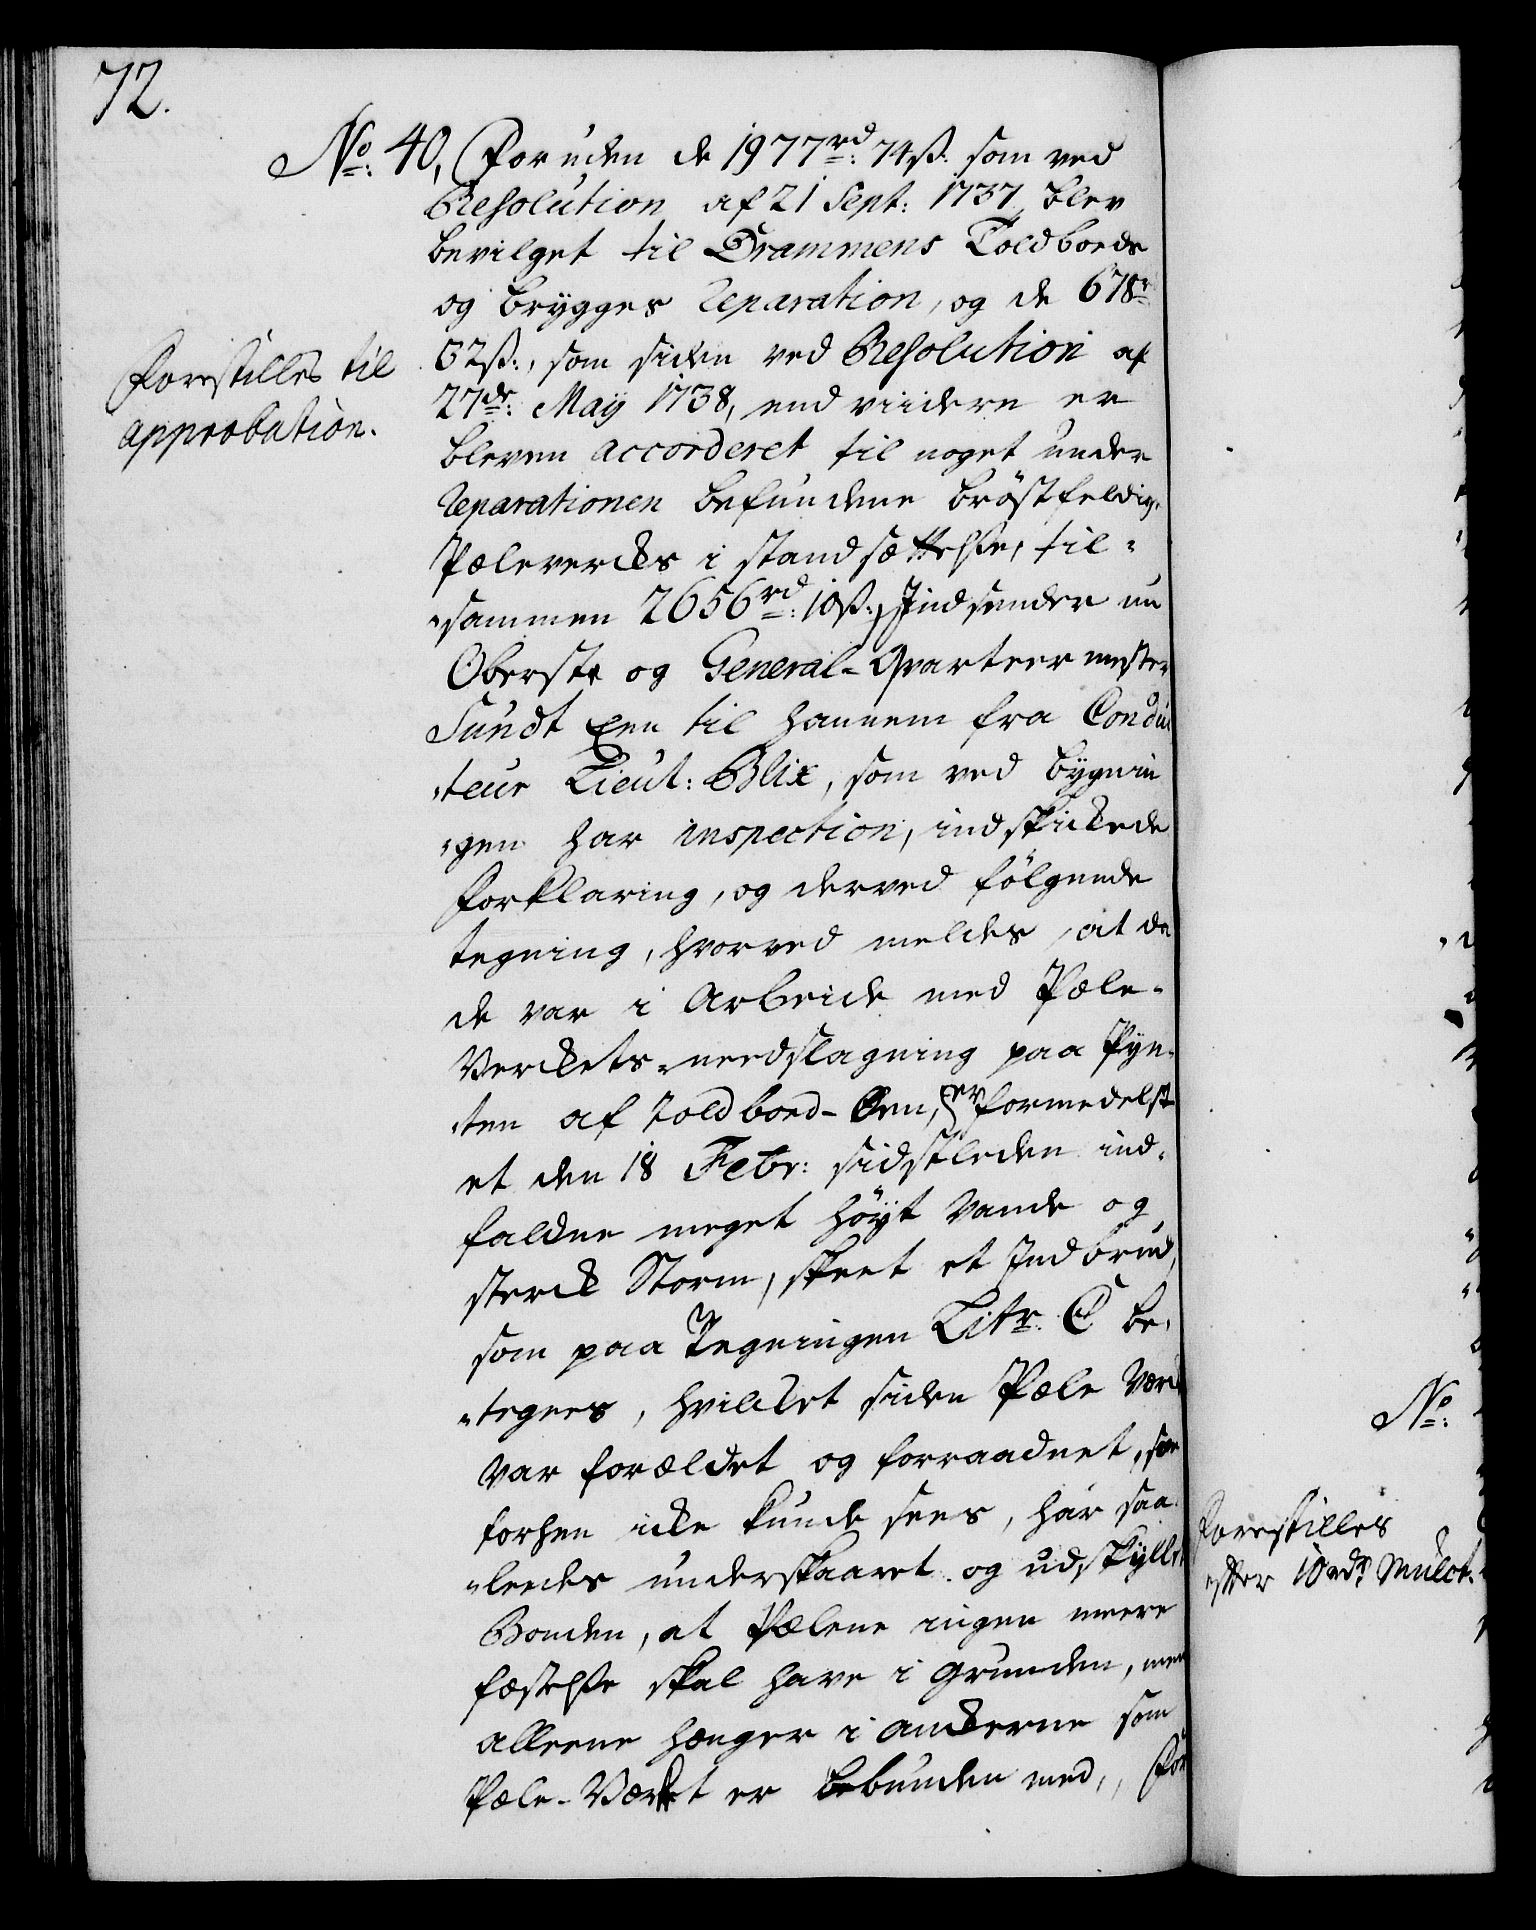 72.
No: 40, Foruden de 1977rd: 74ß: som ved
Resolution af 21 Sept: 1737 blev
bevilget til Drammens Toldboeds
og brygges Reparation, og de 678r
32ß:, som siden ved Resolution af
27de: Maÿ 1738, end viidere er
bleven accorderet til noget under
Reparationen befundene bröstfeldig
Pæleverckes i standsættelße, til-
sammen 2656rd: 10ß:, Indsender nu
Oberste og General-Qvarteermester
Sundt Een til hannem fra Conduc
teur Lieut: Blix, som ved bÿgnin
gen har inspection, indskickede
Forklaring, og derved fölgende
tegning, hvorved meldes, at da
de var i Arbeide med Pæle-
Verckets-needslagning paa Pÿn-
ten af Toldboed-Öen, er formedelst
et den 18 Febr: sidstleden ind-
faldne meget höÿt Vande og
sterck Storm, skeet et Indbrud,
som paa Tegningen Litr. C be-
tegnes, hvilcket siden Pæle Værck
var forældet og forraadnet, som
forhen icke kunde sees, har saa-
leedes underskaaret og udskÿllet
Bonden, at Pælene ingen meere
fæstelße skal have i Grunden, men
alleene hænger i anckerne som
Pæle-Værket er bebunden med, For
Forestilles til
approbation.
No:
Forestilles
efter 10rds Mulct.